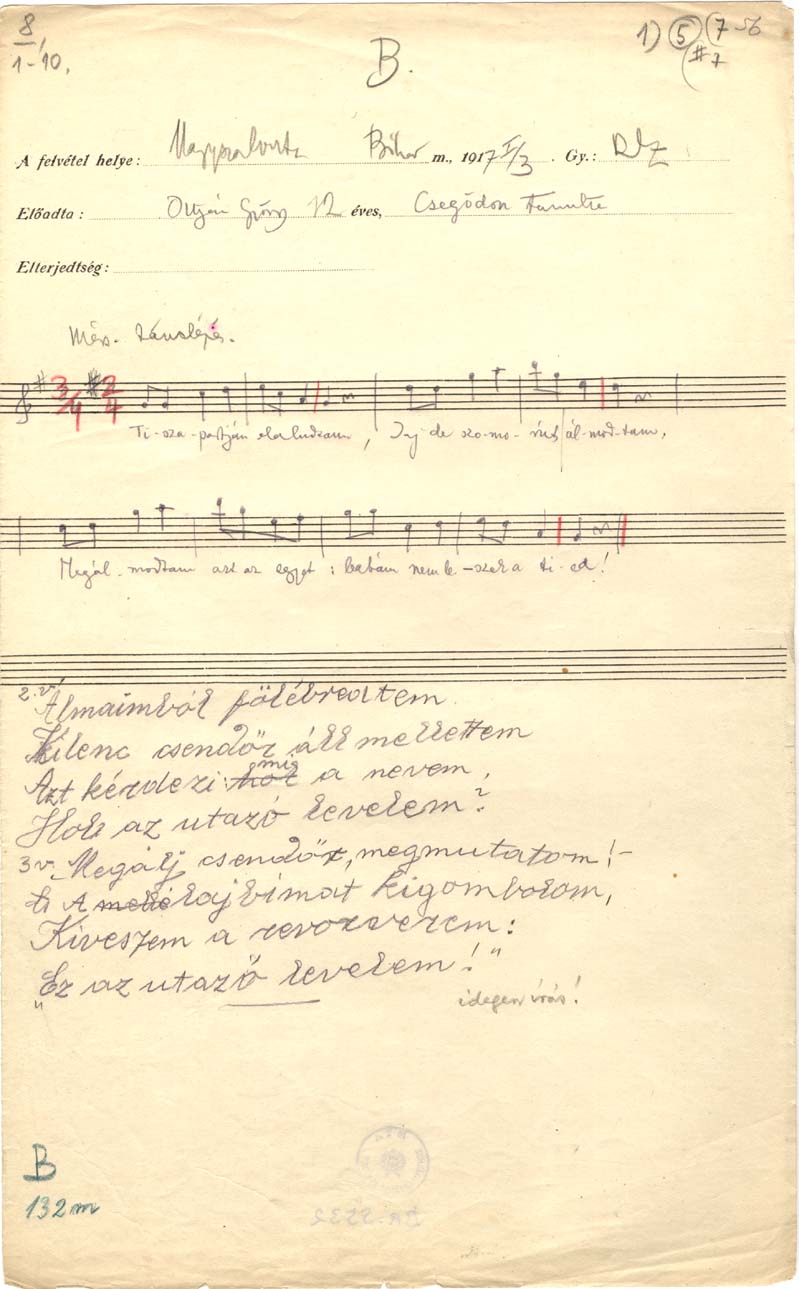 8/1-10,
B.
1) 5 (7-5b
(#7
A felvétel helye: Nagyszalonta Bihar m., 1917 I/3. Gy.:
Előadta: 12 éves, Csegődön
Elterjedtség:
Mérs. tánclépés.
3/4 2/4
Ti-sza-partján elaludtam, Jaj de szo-mo-rút ál-mod-tam,
Megál-modtam azt az egyet: babám nem le-szek a ti-ed!
2.v. Álmaimból fölébredtem
Kilenc csendőr áll mellettem
Azt kérdezi: hol mi a nevem,
Hol az utazó levelem?
3v. Megálj csendőr, megmutatom!-
A laj bimat kigombolom,
Kiveszem a revorverem:
„Ez az utazó levelem!"
idegen írás!
B
132m